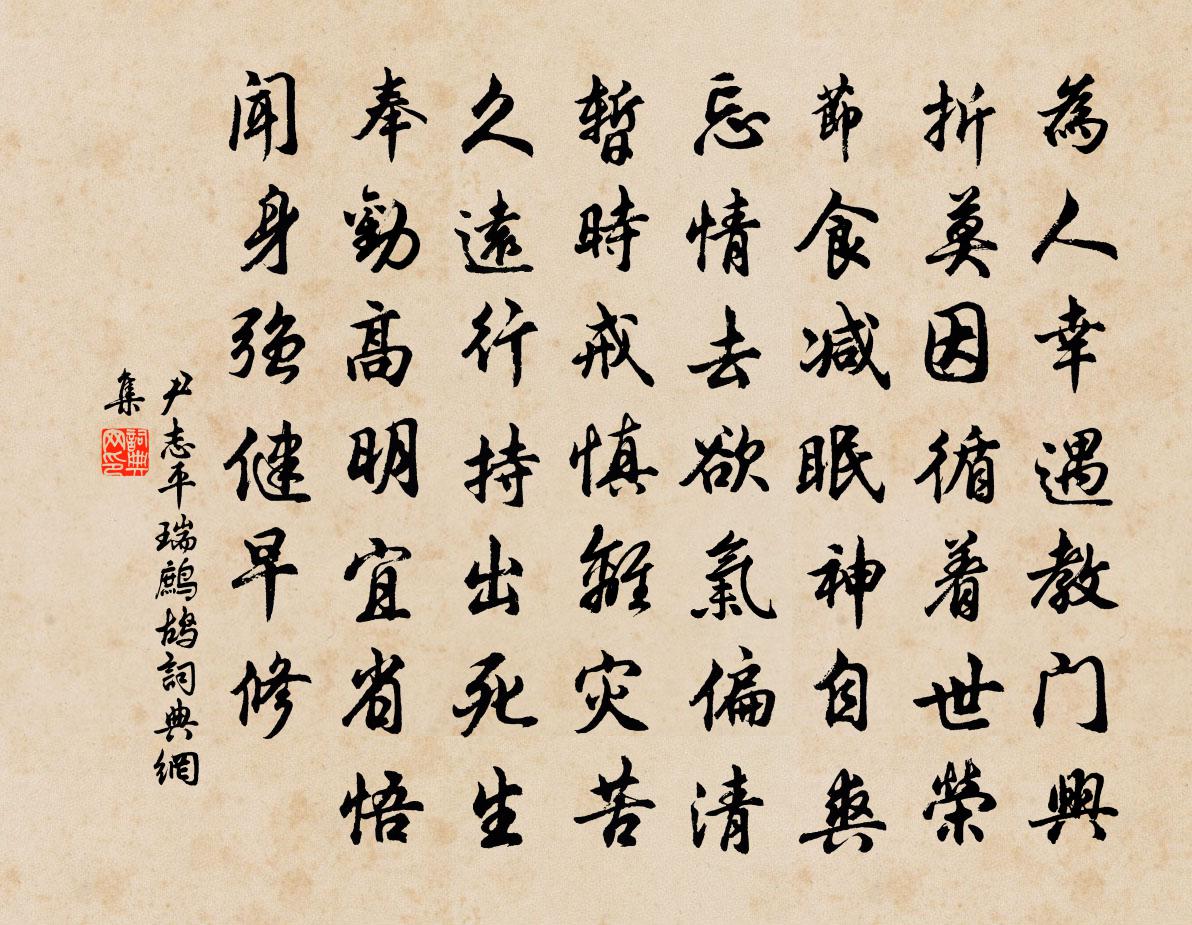 為人幸遇教门興
折莫因循着世榮
節食減眠神自爽
忘情去欲氣偏清
暫時戒慎難灾苦
久遠行持出死生
奉勸高明宜省悟
闻身强健早修
尹志平瑞鷓鴣詞典網
集
詞典网印